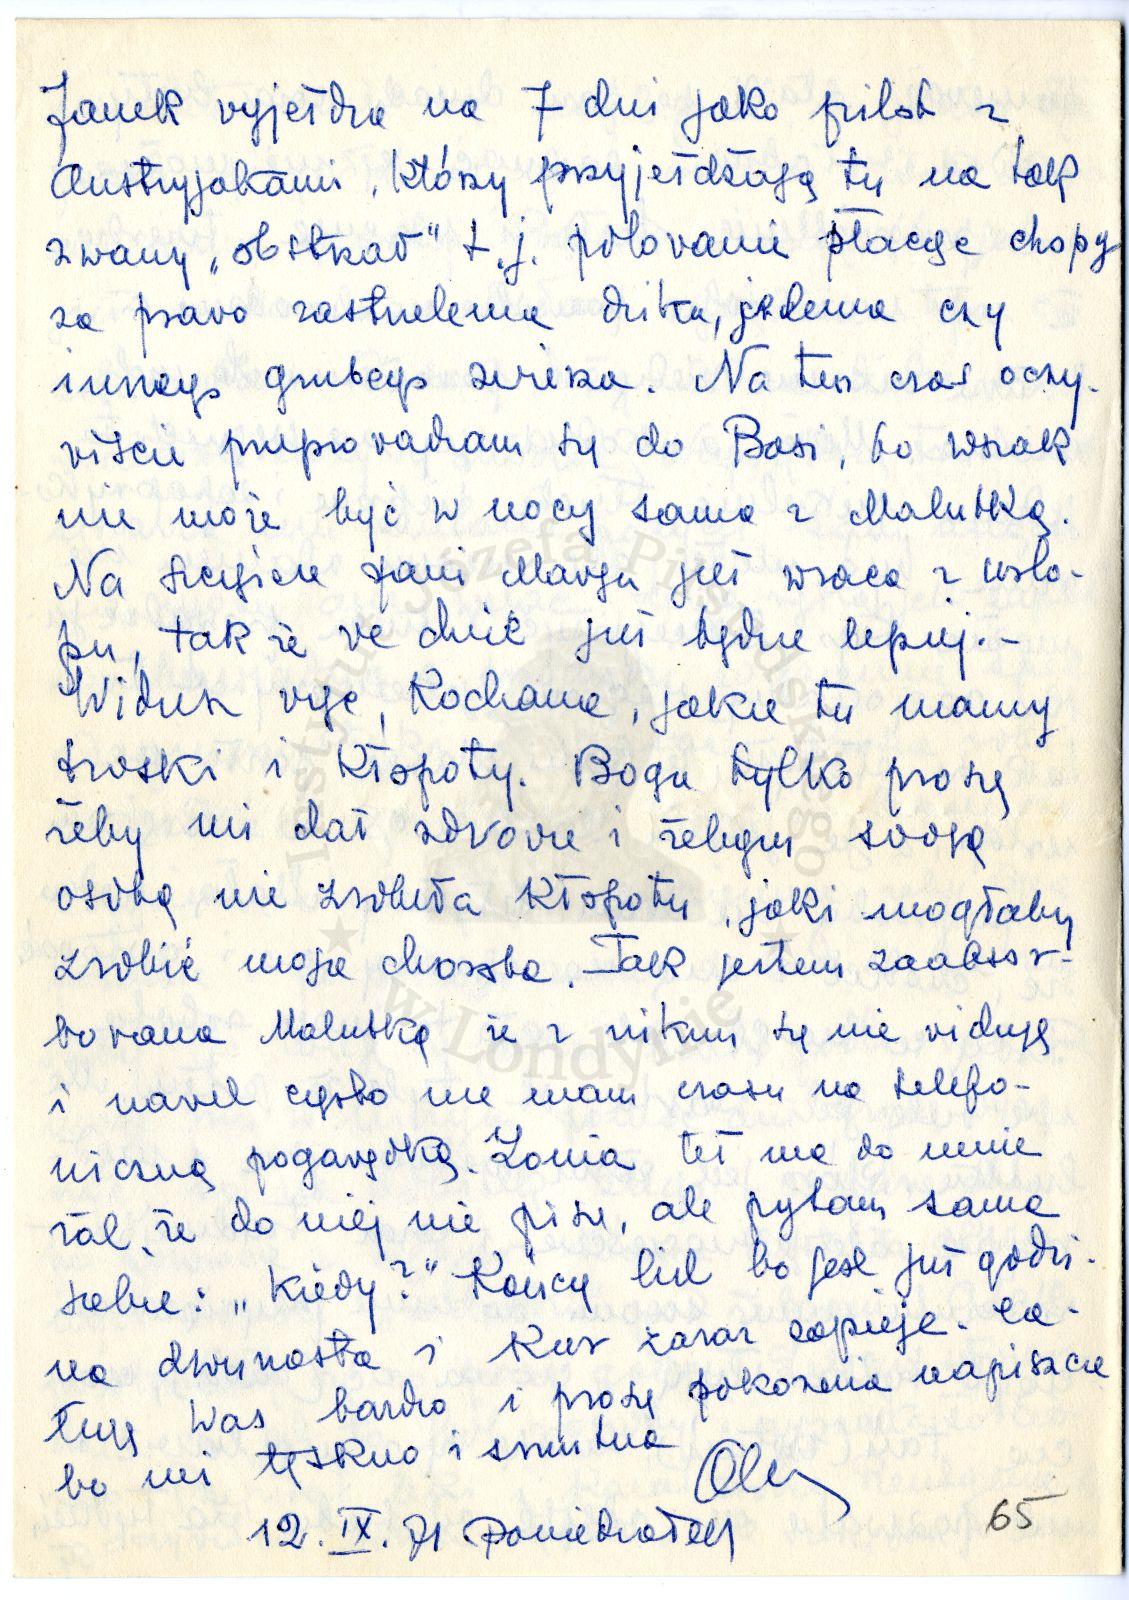 Janek wyjeżdża na 7 dni jako pilot z
Austryjakami, którzy przyjeżdżają tu na tak
zwany „obstkał" t.j. polowanie płacąc
za prawo zastrzelenia dzika, jelenia czy
innego grubego zwierza. Na ten czas oczy-
wiście przeprowadzam się do Basi, bo wszak
nie może być w nocy sama z Malutką.
Na szczęście pani Marysia już wraca z urlo-
pu, tak że we dnie już będzie lepiej.-
Widzisz więc, Kochana, jakie tu mamy
troski i kłopoty. Boga tylko proszę
żeby mi dał zdrowie i żebym swoją
osobą nie zrobiła kłopotu, jaki mogłaby
zrobić moja choroba. Tak jestem zaabsor-
bowana Malutką że z nikim się nie widuję
i nawet często nie mam czasu na telefo-
niczną pogawędkę. Zonia też ma do mnie
żal, że do niej nie piszę, ale pytam sama
siebie: „kiedy?" Kończę list bo jest już godzi-
na dwunasta i kur zaraz zapieje. Ca-
łuję Was bardzo i proszę pokornie napiszcie
bo mi tęskno i smutno
Ola
12.IX.71 Poniedziałek
65
Instytut Józefa Piłsudskiego
w Londynie